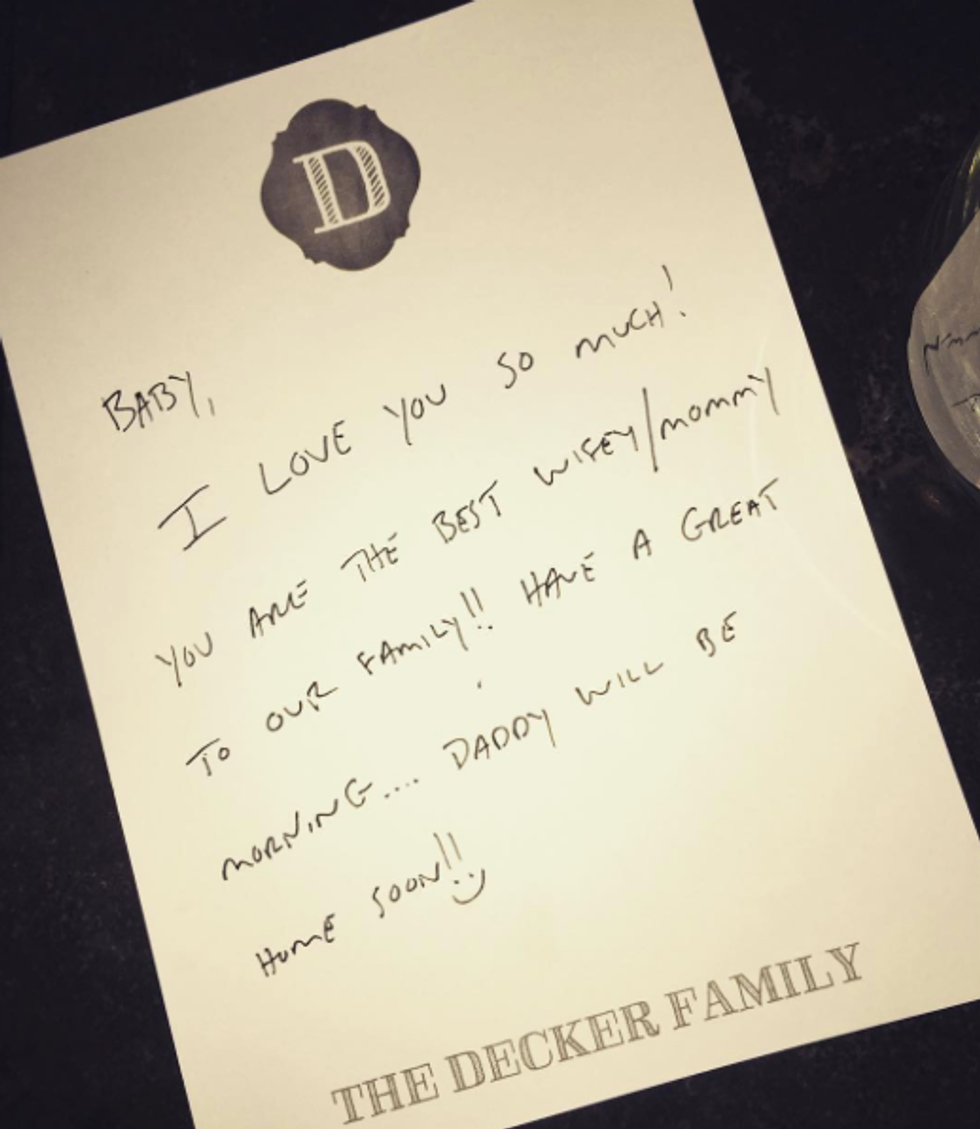 D
BABY,
I LOVE YOU SO MUCH!
YOU ARE THE BEST WIFEY/MOMMY
TO OUR FAMILY!! HAVE A GREAT
MORNING.... DADDY WILL BE
HOME SOON!!
THE DECKER FAMILY